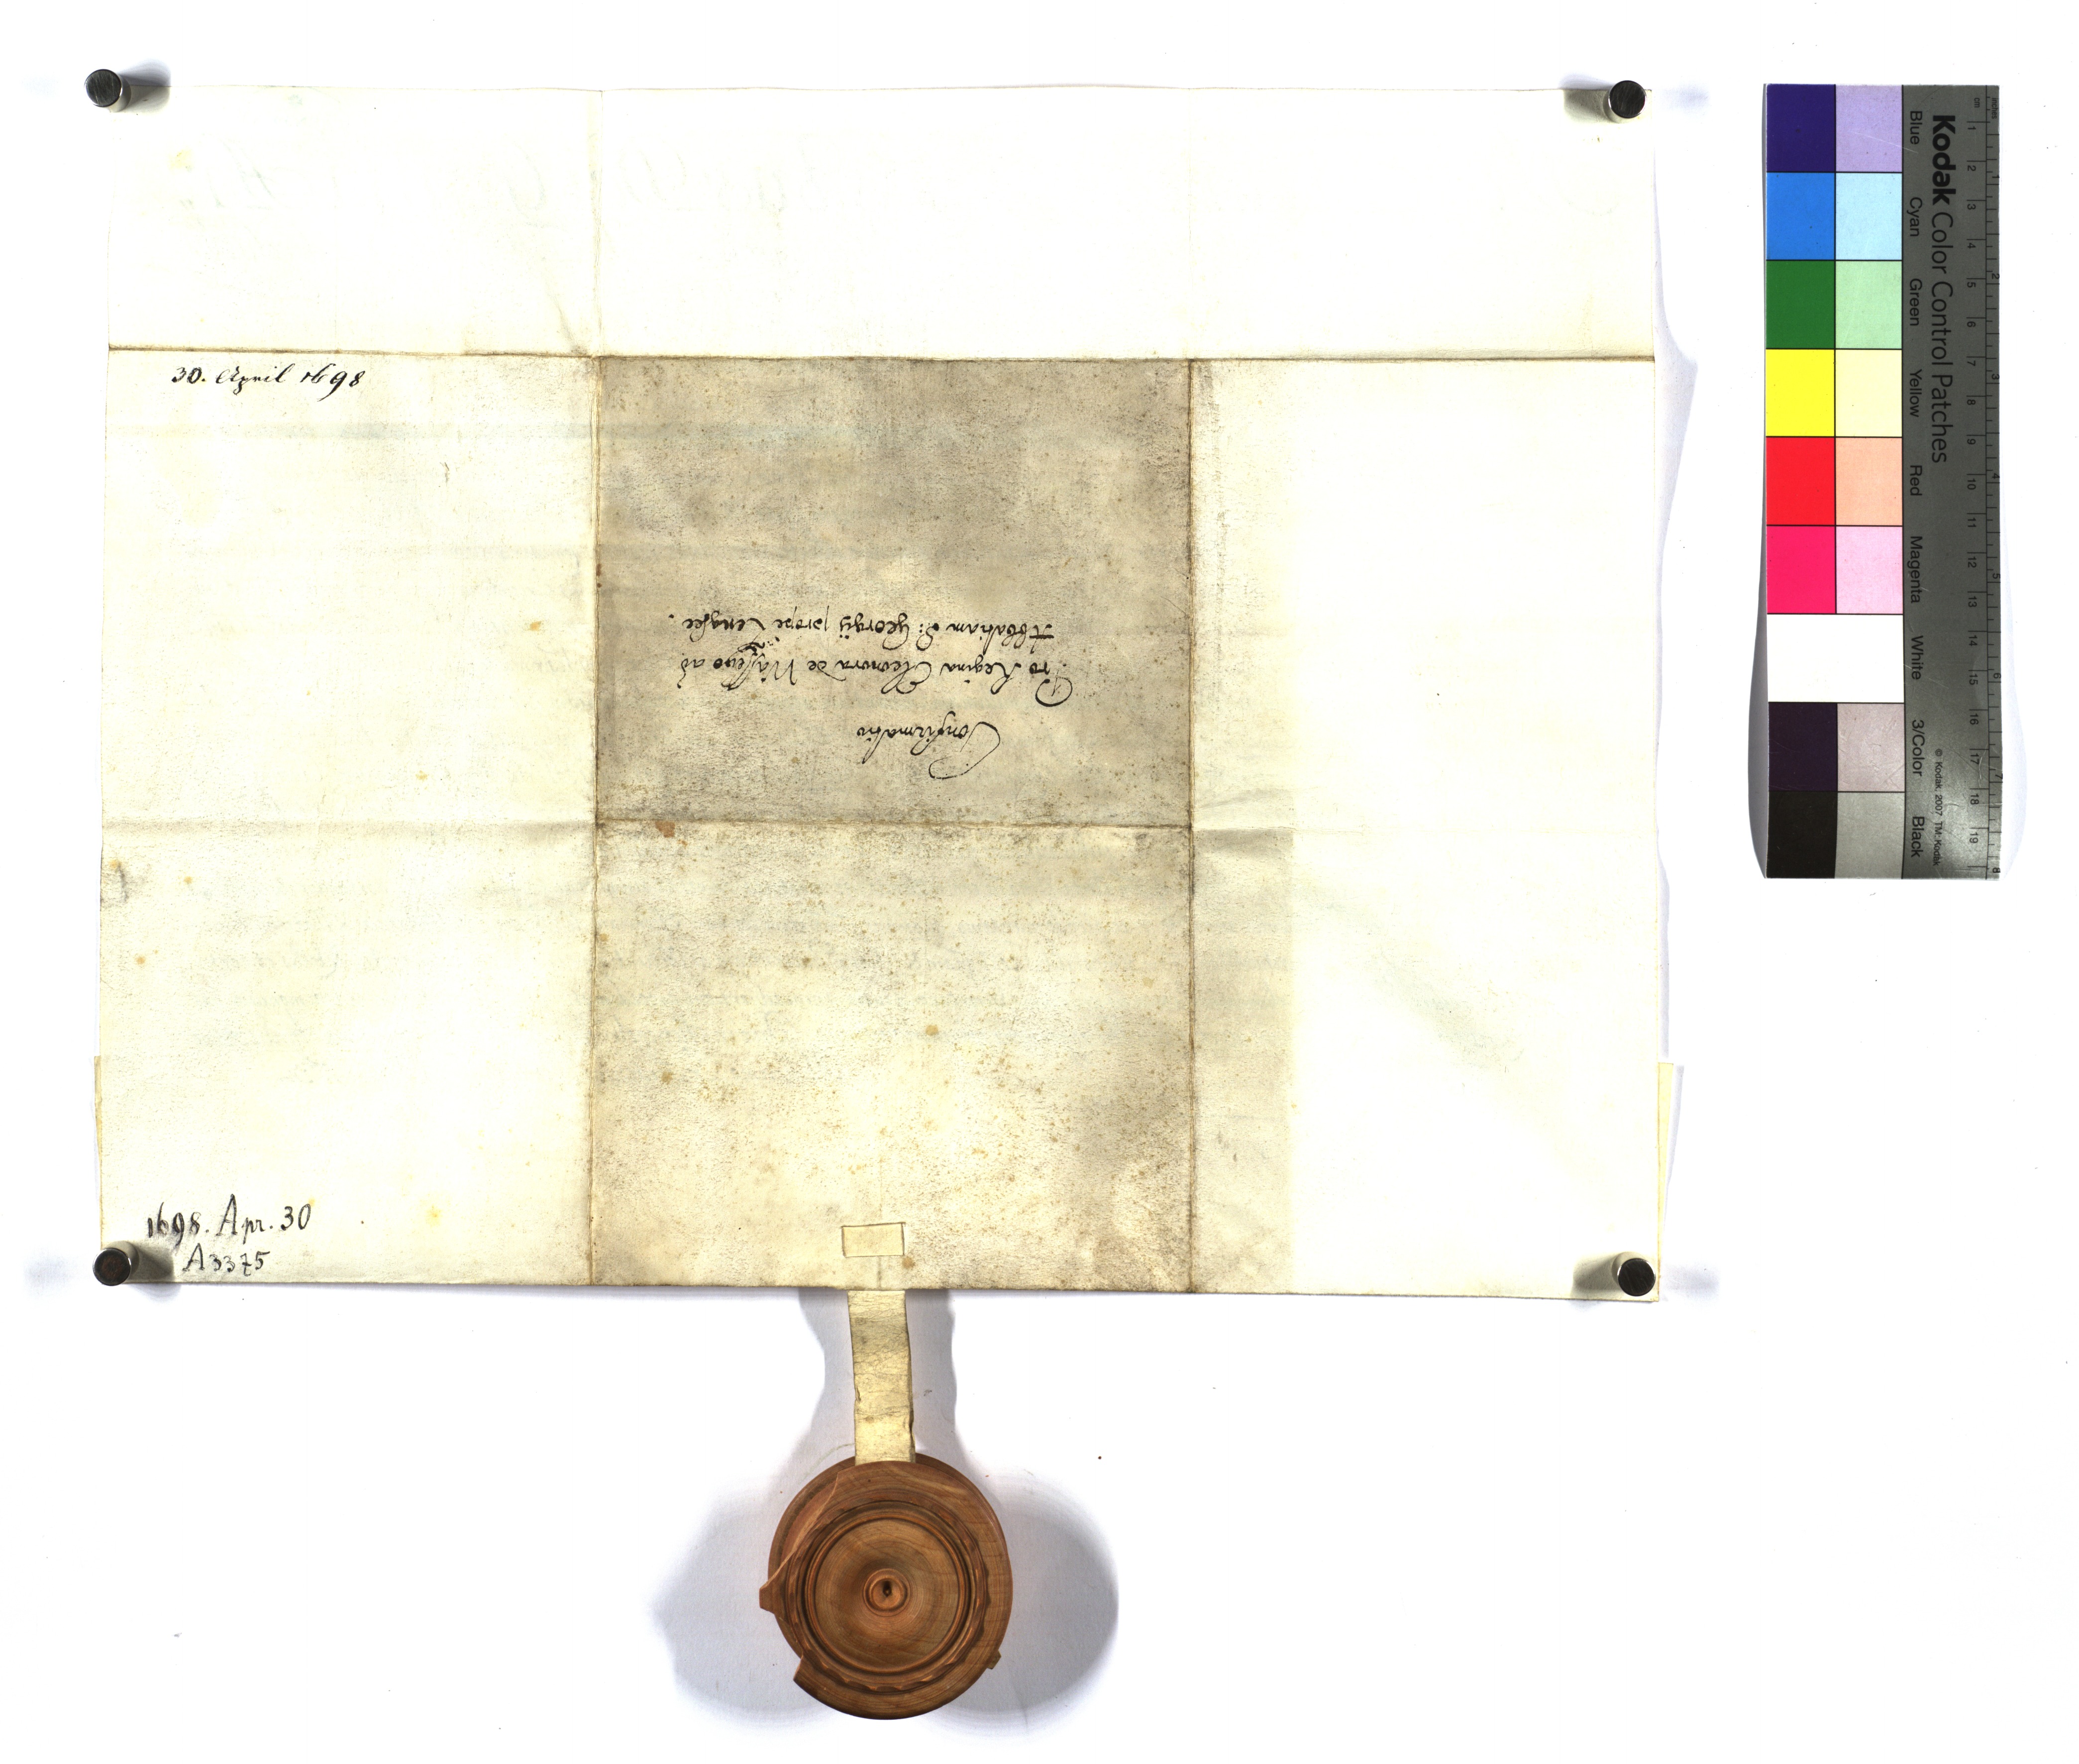 30. April 1698
Confirmatio
Pro Regina Eleonora de
Abbatiam S: Georgij prope
1698. Apr. 30
A3375
Kodak Color Control Patches
Blue Cyan Green Yellow Red Magenta White 3/Color Black
© Kodak, 2007 TM: Kodak
inches 1 2 3 4 5 6 7 8
cm 1 2 3 4 5 6 7 8 9 10 11 12 13 14 15 16 17 18 19